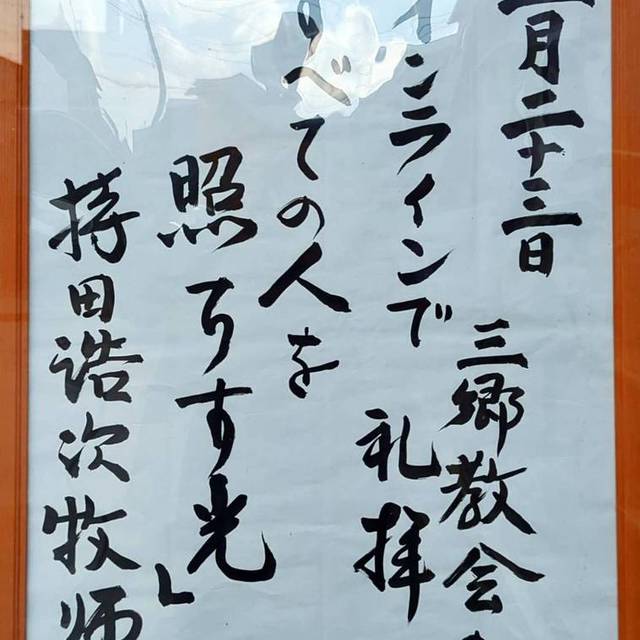 月二十三日
三郷教会
ンラインで 礼拝
べての人を
照らす光」
持田浩次牧師